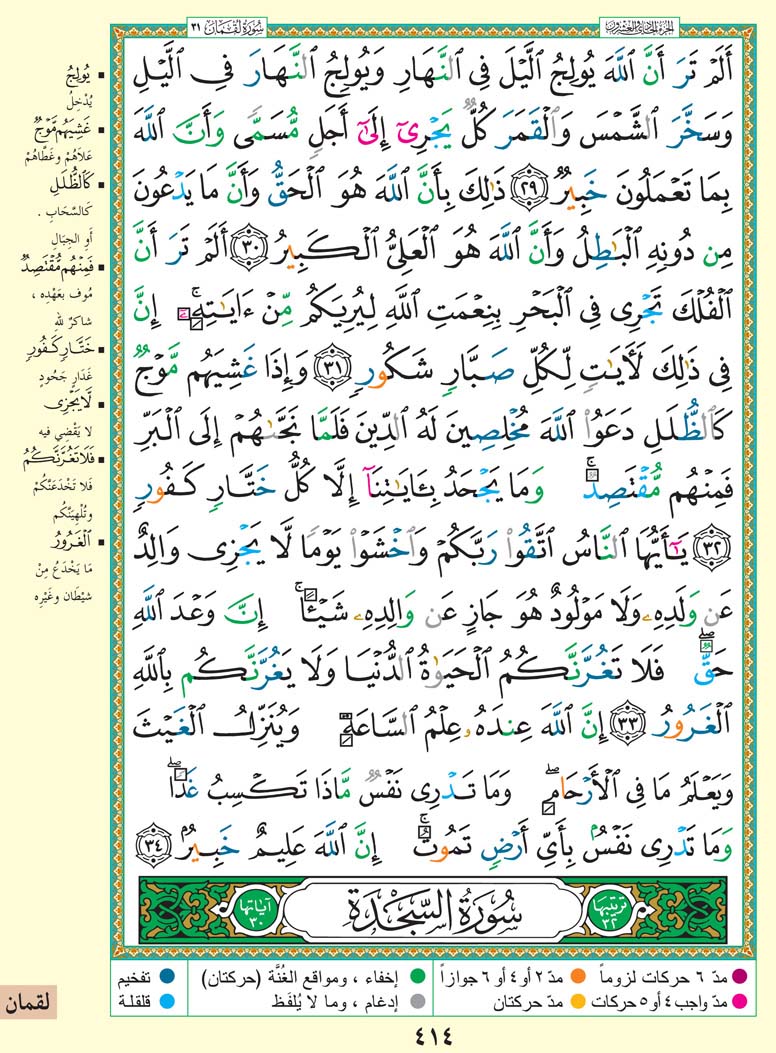 سُورَةُ لُقْمَانَ ٣١
الجُزءُ الحَادِي وَالعِشْرُون
أَلَمْ تَرَ أَنَّ ٱللَّهَ يُولِجُ ٱلَّيْلَ فِى ٱلنَّهَارِ وَيُولِجُ ٱلنَّهَارَ فِى ٱلَّيْلِ
وَسَخَّرَ ٱلشَّمْسَ وَٱلْقَمَرَ كُلٌّ يَجْرِىٓ إِلَىٰٓ أَجَلٍ مُّسَمًّى وَأَنَّ ٱللَّهَ
بِمَا تَعْمَلُونَ خَبِيرٌ ٢٩ ذَٰلِكَ بِأَنَّ ٱللَّهَ هُوَ ٱلْحَقُّ وَأَنَّ مَا يَدْعُونَ
مِن دُونِهِ ٱلْبَـٰطِلُ وَأَنَّ ٱللَّهَ هُوَ ٱلْعَلِىُّ ٱلْكَبِيرُ ٣٠ أَلَمْ تَرَ أَنَّ
ٱلْفُلْكَ تَجْرِى فِى ٱلْبَحْرِ بِنِعْمَتِ ٱللَّهِ لِيُرِيَكُم مِّنْ ءَايَـٰتِهِۦٓ ۚ إِنَّ
فِى ذَٰلِكَ لَـَٔايَـٰتٍ لِّكُلِّ صَبَّارٍ شَكُورٍ ٣١ وَإِذَا غَشِيَهُم مَّوْجٌ
كَٱلظُّلَلِ دَعَوُا۟ ٱللَّهَ مُخْلِصِينَ لَهُ ٱلدِّينَ فَلَمَّا نَجَّىٰهُمْ إِلَى ٱلْبَرِّ
فَمِنْهُم مُّقْتَصِدٌ ۚ وَمَا يَجْحَدُ بِـَٔايَـٰتِنَآ إِلَّا كُلُّ خَتَّارٍ كَفُورٍ
٣٢ يَـٰٓأَيُّهَا ٱلنَّاسُ ٱتَّقُوا۟ رَبَّكُمْ وَٱخْشَوْا۟ يَوْمًا لَّا يَجْزِى وَالِدٌ
عَن وَلَدِهِۦ وَلَا مَوْلُودٌ هُوَ جَازٍ عَن وَالِدِهِۦ شَيْـًٔا ۚ إِنَّ وَعْدَ ٱللَّهِ
حَقٌّ ۖ فَلَا تَغُرَّنَّكُمُ ٱلْحَيَوٰةُ ٱلدُّنْيَا وَلَا يَغُرَّنَّكُم بِٱللَّهِ
ٱلْغَرُورُ ٣٣ إِنَّ ٱللَّهَ عِندَهُۥ عِلْمُ ٱلسَّاعَةِ ۖ وَيُنَزِّلُ ٱلْغَيْثَ
وَيَعْلَمُ مَا فِى ٱلْأَرْحَامِ ۖ وَمَا تَدْرِى نَفْسٌ مَّاذَا تَكْسِبُ غَدًا ۖ
وَمَا تَدْرِى نَفْسٌۢ بِأَىِّ أَرْضٍ تَمُوتُ ۚ إِنَّ ٱللَّهَ عَلِيمٌ خَبِيرٌۢ ٣٤
ترتيبها ٣٢ سُورَةُ السَّجْدَةِ آياتها ٣٠
▪ يُولِجُ
يُدْخِلُ
▪ غَشِيَهُم مَّوْجٌ
عَلاَهُمْ وغَطَّاهُمْ
▪ كَٱلظُّلَلِ
كَالسَّحَابِ .
أو الجِبَالِ
▪ فَمِنْهُم مُّقْتَصِدٌ
مُوفٍ بعَهْدِهِ ،
شاكرٌ لله
▪ خَتَّارٍ كَفُورٍ
غَدَّارٍ جَحُودٍ
▪ لَّا يَجْزِى
لا يَقْضِي فيه
▪ فَلَا تَغُرَّنَّكُمُ
فلا تَخْدَعَنَّكُمْ
وتُلْهِيَنَّكُم
▪ ٱلْغَرُورُ
مَا يَخْدَعُ مِنْ
شَيْطَانٍ وغَيْرِهِ
مدّ ٦ حركات لزوماً ● مدّ ٢ أو ٤ أو ٦ جوازاً ● إخفاء ، ومواقع الغُنَّة (حركتان) ● تفخيم
مدّ واجب ٤ أو ٥ حركات ● مدّ حركتان ● إدغام ، وما لا يُلفَظ ● قلقلة
لقمان
٤١٤